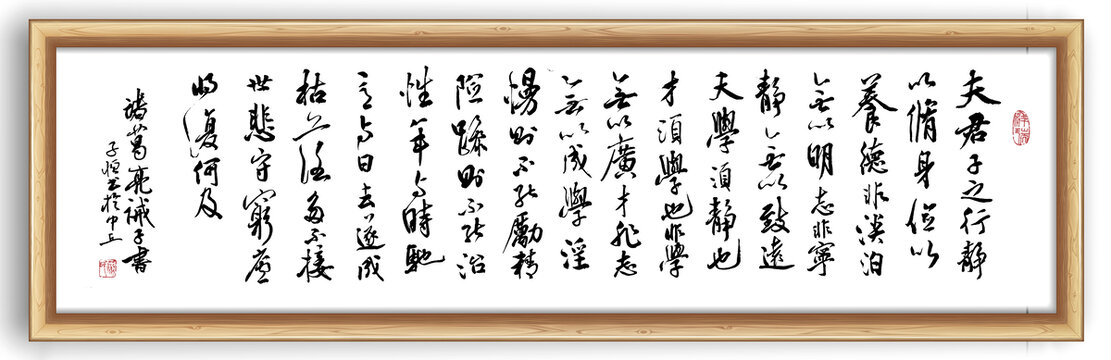 夫君子之行静
以脩身俭以
養德非淡泊
無以明志非寧
静無以致遠
夫學須静也
才須學也非學
無以廣才非志
無以成學淫
慢则不能勵精
险躁则不能治
性年与時馳
意与日去遂成
枯落多不接
世悲守窮廬
将復何及
诸葛亮诫子書
子恒书於中丘